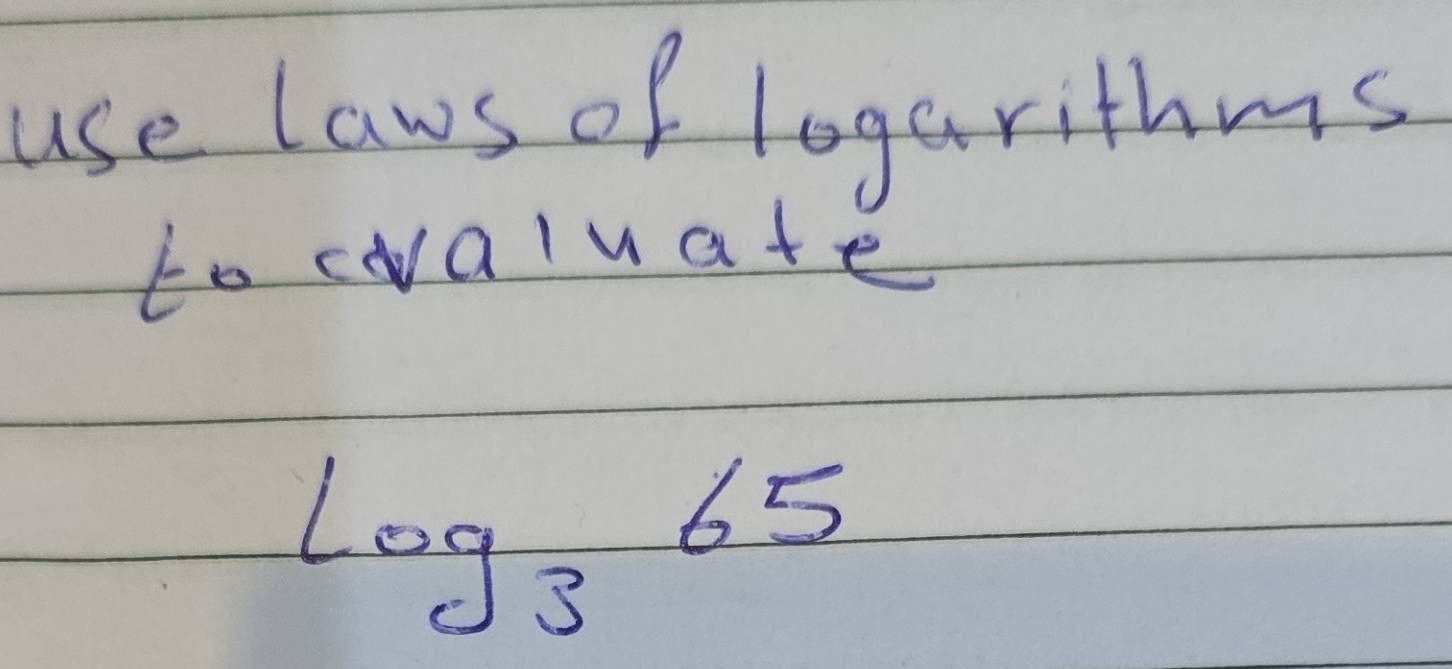 use laws of logarithms
to evaluate
Log₃ 65